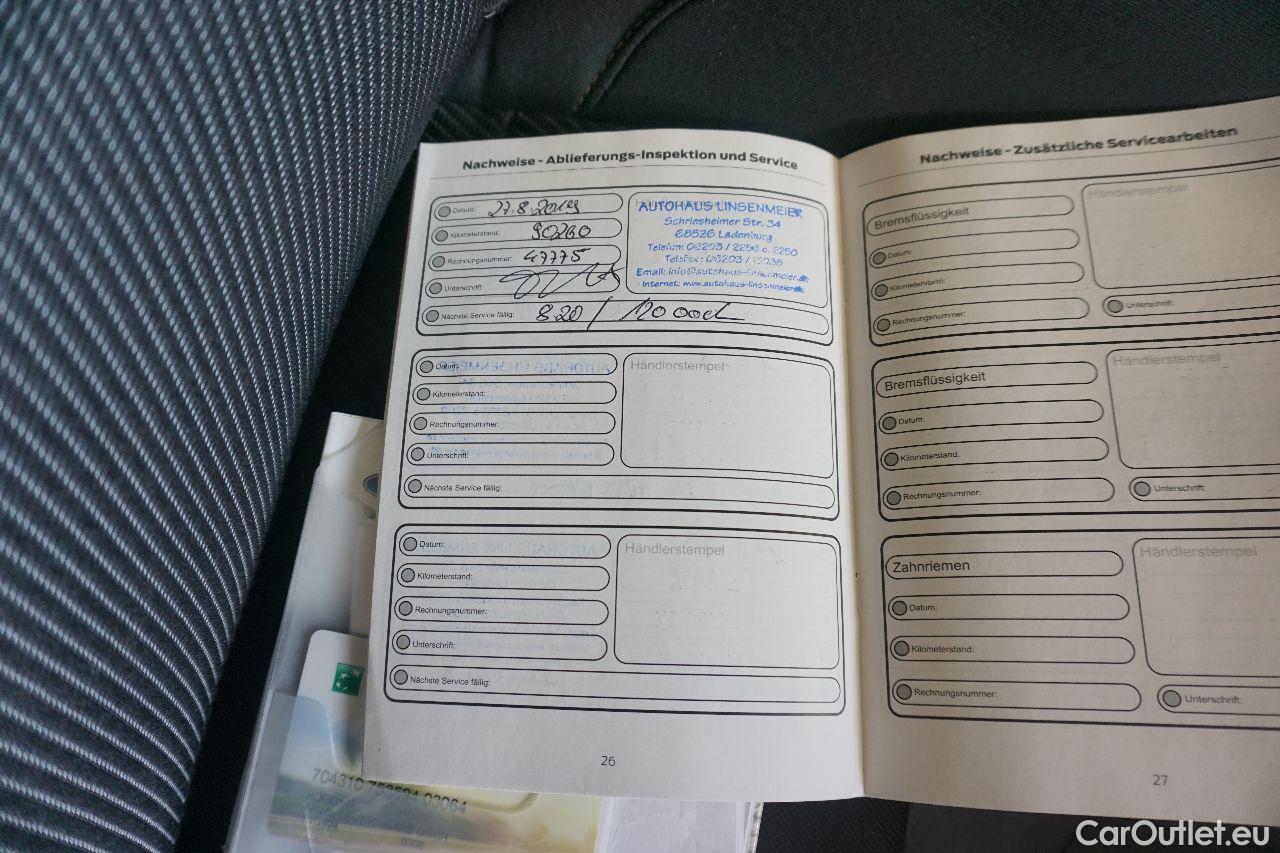 Nachweise - Ablieferungs-Inspektion und Service
Datum: 27.8.2019
Kilometerstand: 90260
Rechnungsnummer: 47775
Unterschrift:
Nächste Service fällig: 820 /
AUTOHAUS LINSENMEIER
Schriesheimer Str. 34
68526 Ladenburg
Telefon: 06203 / 2256 o. 2250
Telefax: 06203 /
Email: info@autohaus-linsenmeier.de
Internet: www.autohaus-linsenmeier.de
Datum:
Kilometerstand:
Rechnungsnummer:
Unterschrift:
Nächste Service fällig:
Händlerstempel
Datum:
Kilometerstand:
Rechnungsnummer:
Unterschrift:
Nächste Service fällig:
Händlerstempel
26
Nachweise - Zusätzliche Servicearbeiten
Bremsflüssigkeit
Händlerstempel
Datum:
Kilometerstand:
Rechnungsnummer:
Unterschrift:
Bremsflüssigkeit
Händlerstempel
Datum:
Kilometerstand:
Rechnungsnummer:
Unterschrift:
Zahnriemen
Händlerstempel
Datum:
Kilometerstand:
Rechnungsnummer:
Unterschrift:
27
CarOutlet.eu